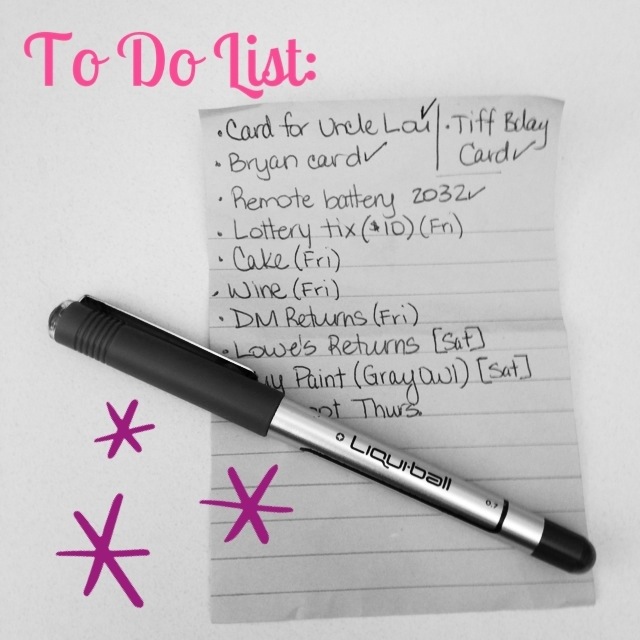 To Do List:
• Card for Uncle Lou ✓
• Tiff Bday
Card ✓
• Bryan card ✓
• Remote battery 2032 ✓
• Lottery tix ($10) (Fri)
• Cake (Fri)
• Wine (Fri)
• DM Returns (Fri)
• Lowe's Returns [Sat]
Paint (Gray Owl) [Sat]
Thurs.
Liqui·ball
0.7